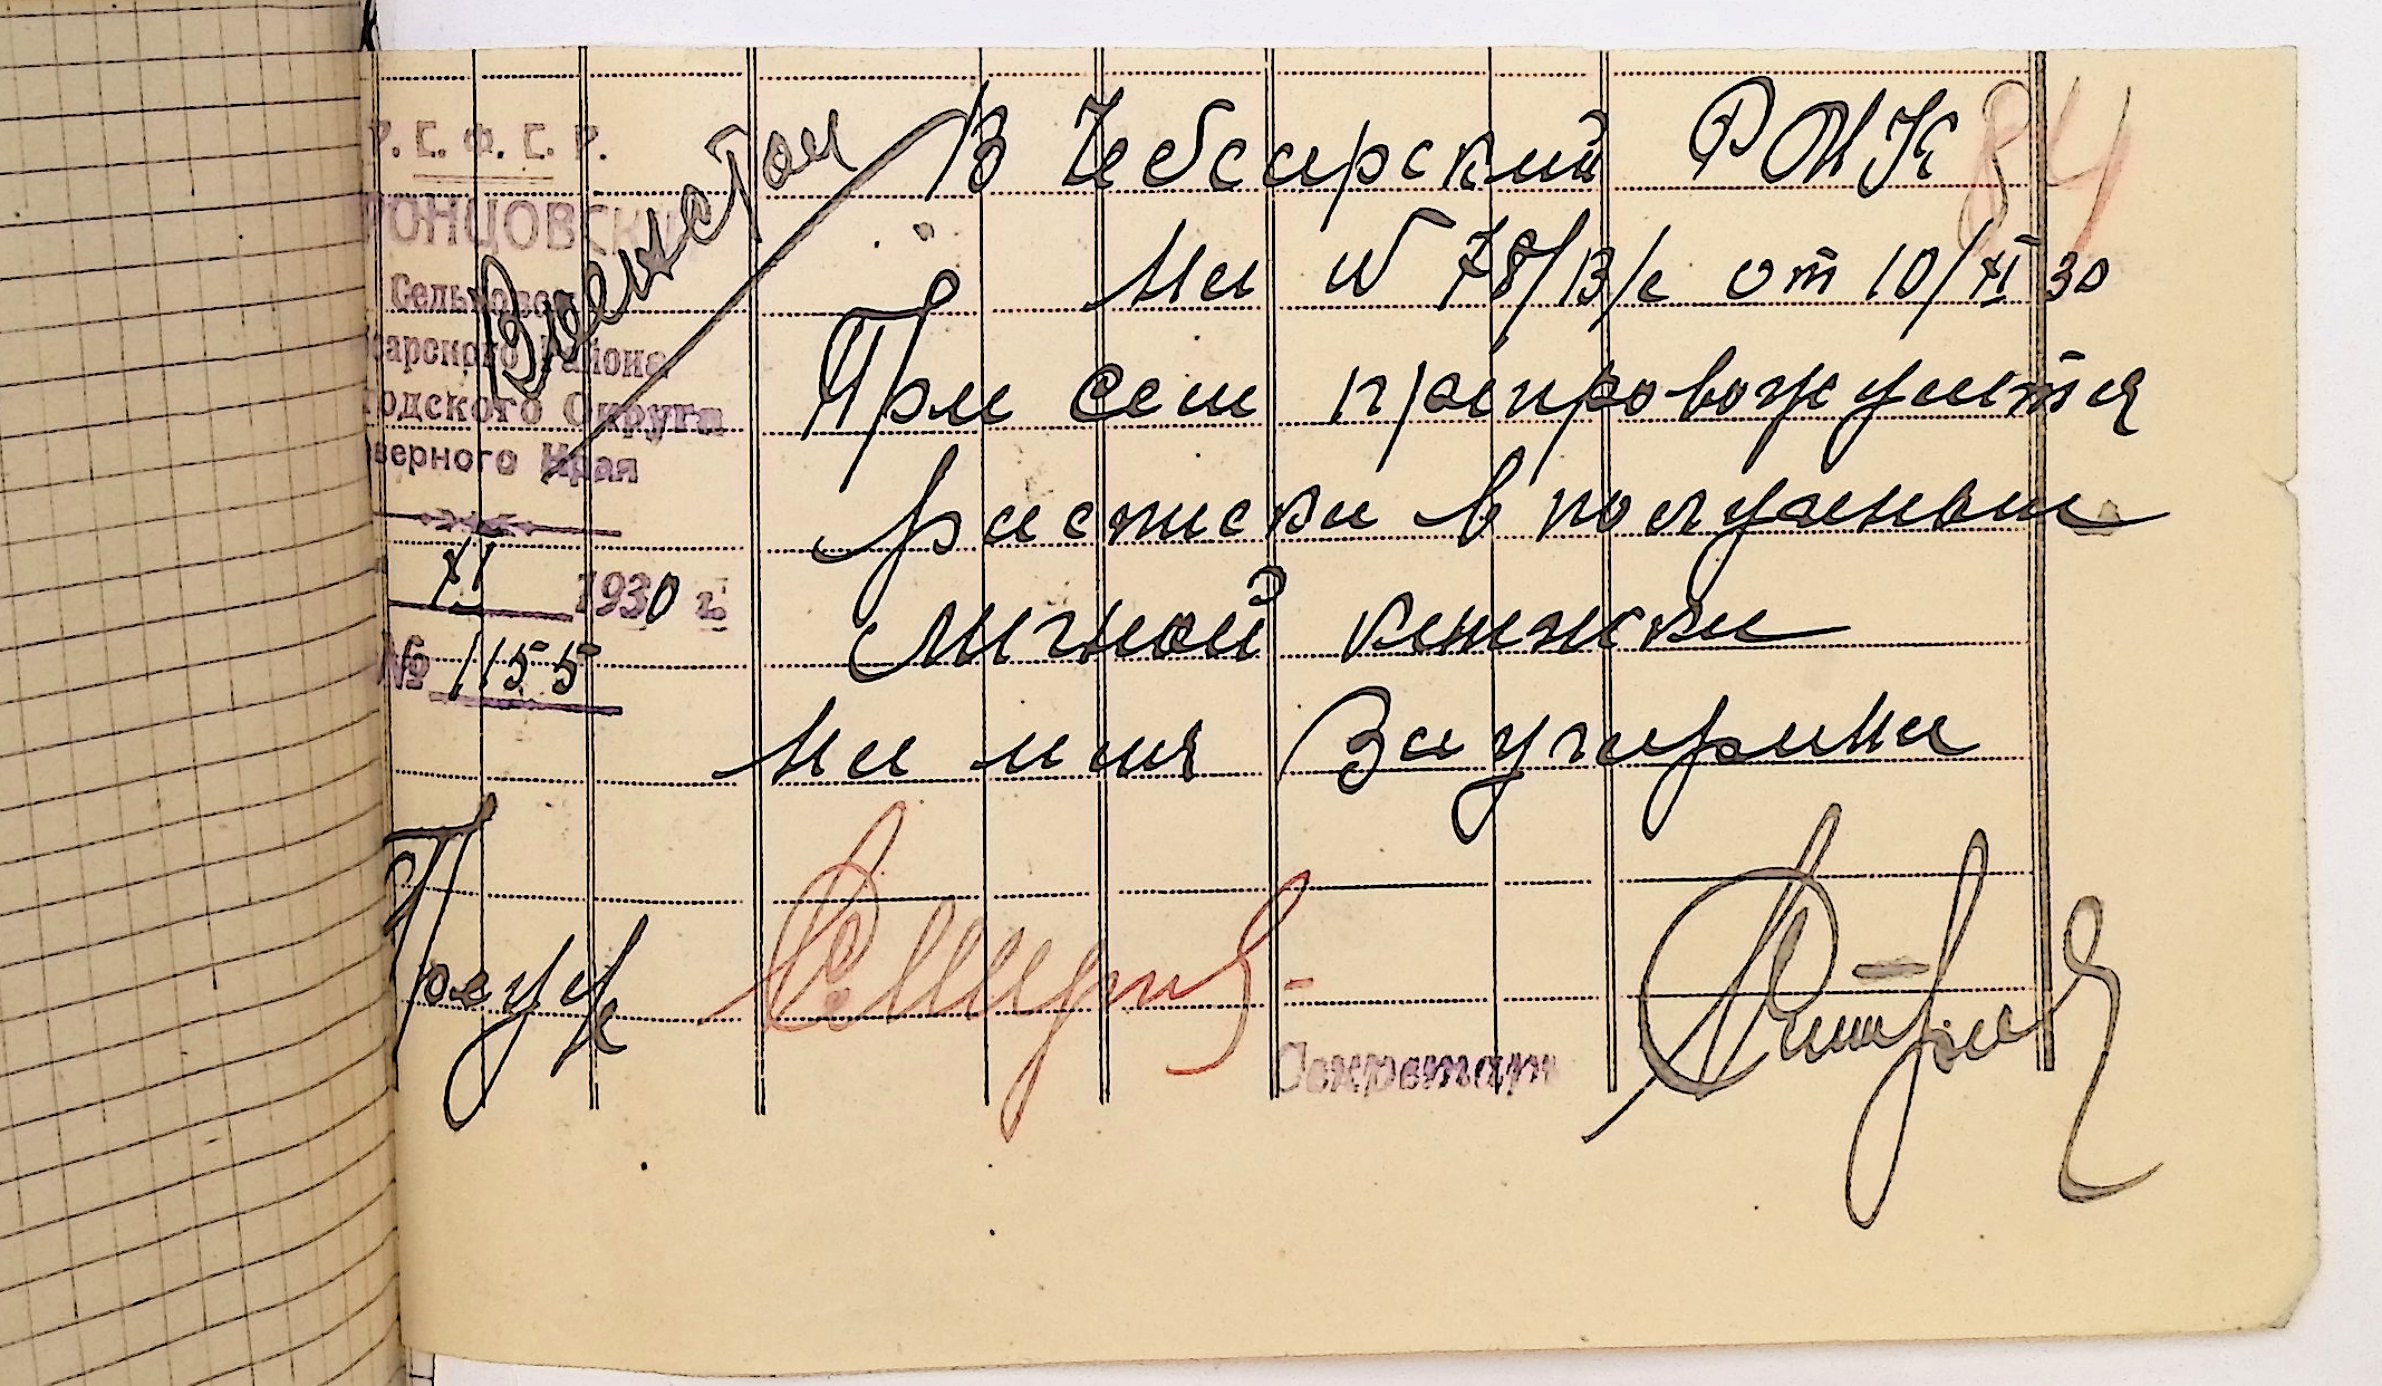 Р. С. Ф. С. Р.
ОНЦОВСК
Сельсовет
сарского Района
одского Округа
верного Края
XI 1930 г.
№ 1155
Воен стол
В Чебсарский РИК
84
На № 78/в/с от 10/XI 30
При сем препровождается
расписка в получении
личной книжки
на имя Заугарина
Пред
Секретарь